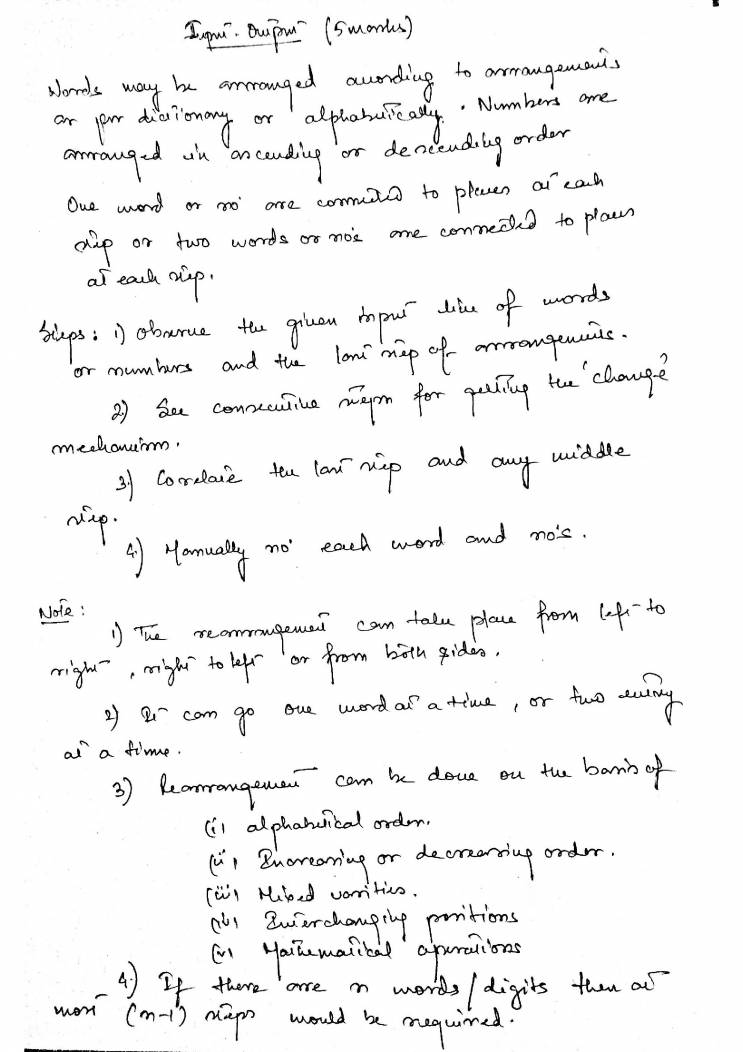 Input-Output (5 marks)
Words may be arranged according to arrangements
as per dictionary or alphabetically. Numbers are
arranged in ascending or descending order
One word or no. are connected to places at each
step or two words or no's are connected to places
at each step.
Steps: 1) Observe the given input line of words
or numbers and the last step of arrangements.
2) See consecutive steps for getting the 'change'
mechanism.
3) Corelate the last step and any middle
step.
4) Manually no. each word and no's.
Note:
1) The rearrangement can take place from left to
right, right to left or from both sides.
2) It can go one word at a time, or two
at a time.
3) Rearrangement can be done on the basis of
(i) alphabetical order.
(ii) Increasing or decreasing order.
(iii) Mixed varities.
(iv) Interchanging positions
(v) Mathematical operations
4) If there are n words/digits then at
most (n-1) steps would be required.